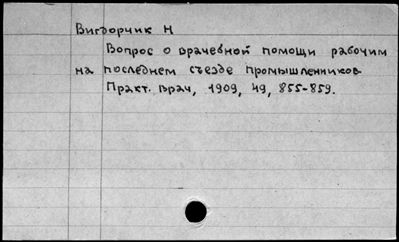 Вигдорчик Н
Вопрос о врачебной помощи рабочим
на последнем съезде промышленников
Практ. врач, 1909, 49, 855-859.